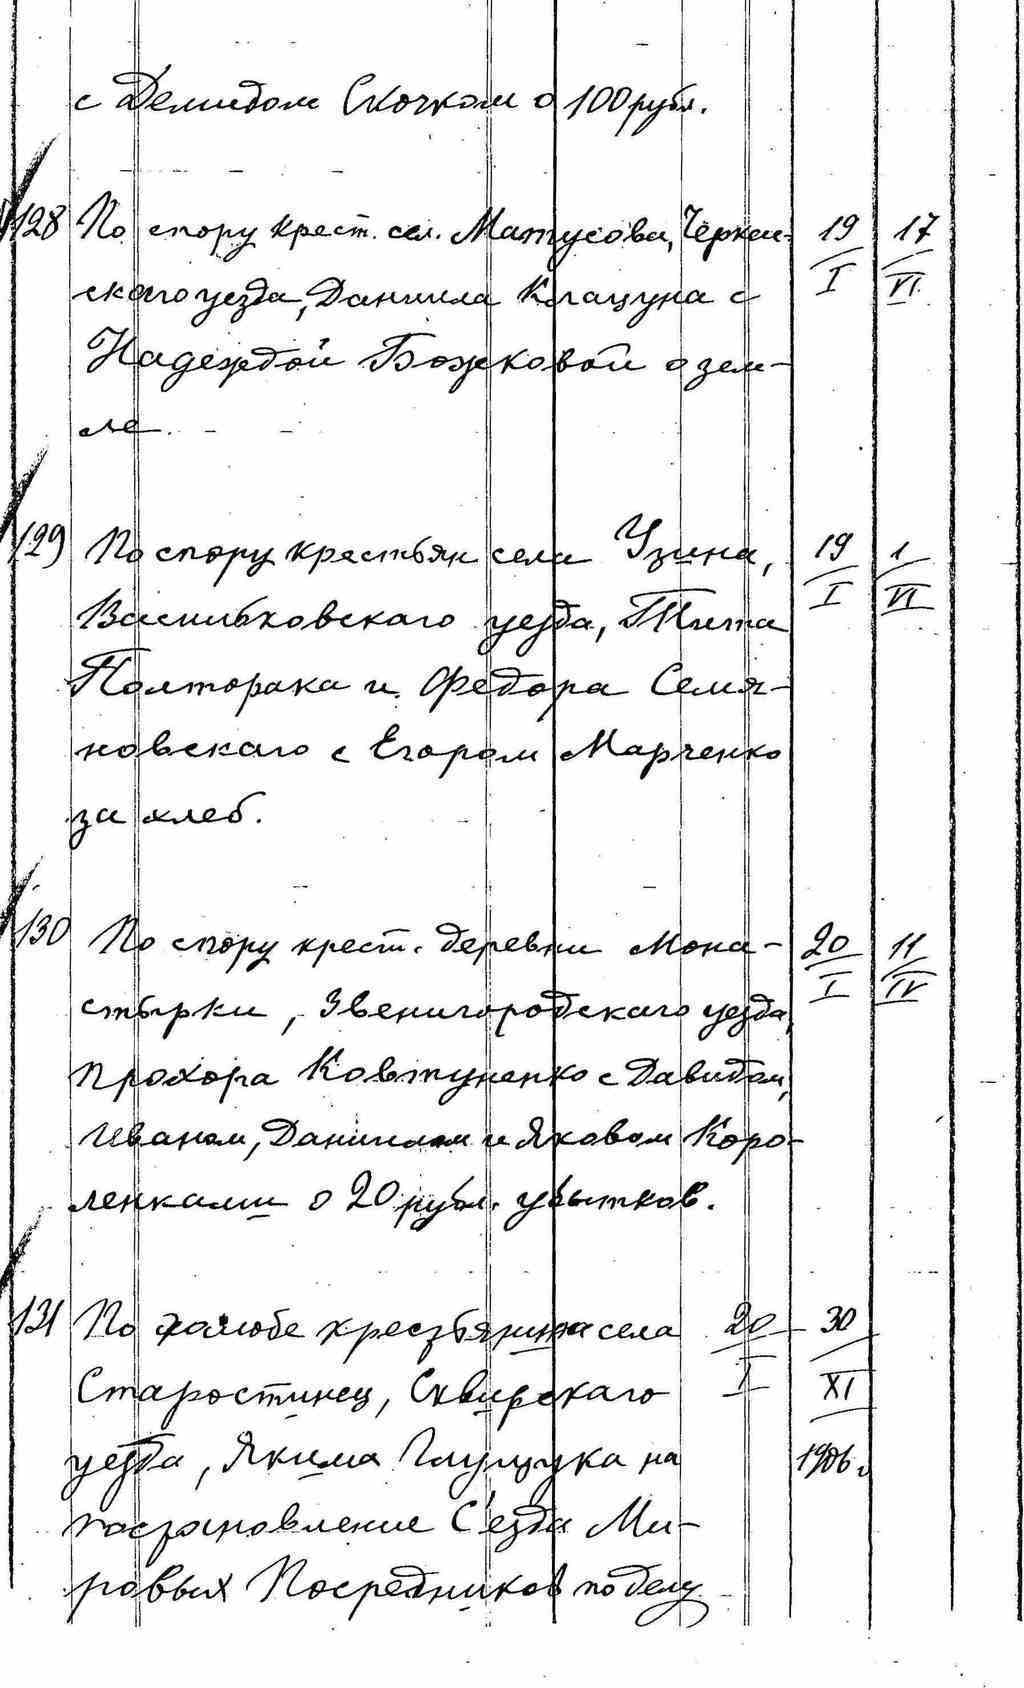 с Демидом Скочком о 100 рубл.
128 По спору крест. сел. Матусова, Черкас- 19/I 17/VI
скаго уезда, Даниила Клацуна с
Надеждой Божковой о зем-
ле.
129 По спору крестьян села Узина, 19/I 1/VI
Васильковскаго уезда, Тита
Полторака и Федора Семя-
новскаго с Егором Марченко
за хлеб.
130 По спору крест. деревни Мона- 20/I 11/IV
стырки, Звенигородскаго уезда,
Прохора Ковтуненко с Давидом,
Иваном, Даниилом и Яковом Коро-
ленками о 20 рубл. убытков.
131 По жалобе крестьянина села 20/I 30/XI
Старостинец, Сквирскаго
уезда, Якима Глущука на 1906 г.
постановление С'езда Ми-
ровых Посредников по делу